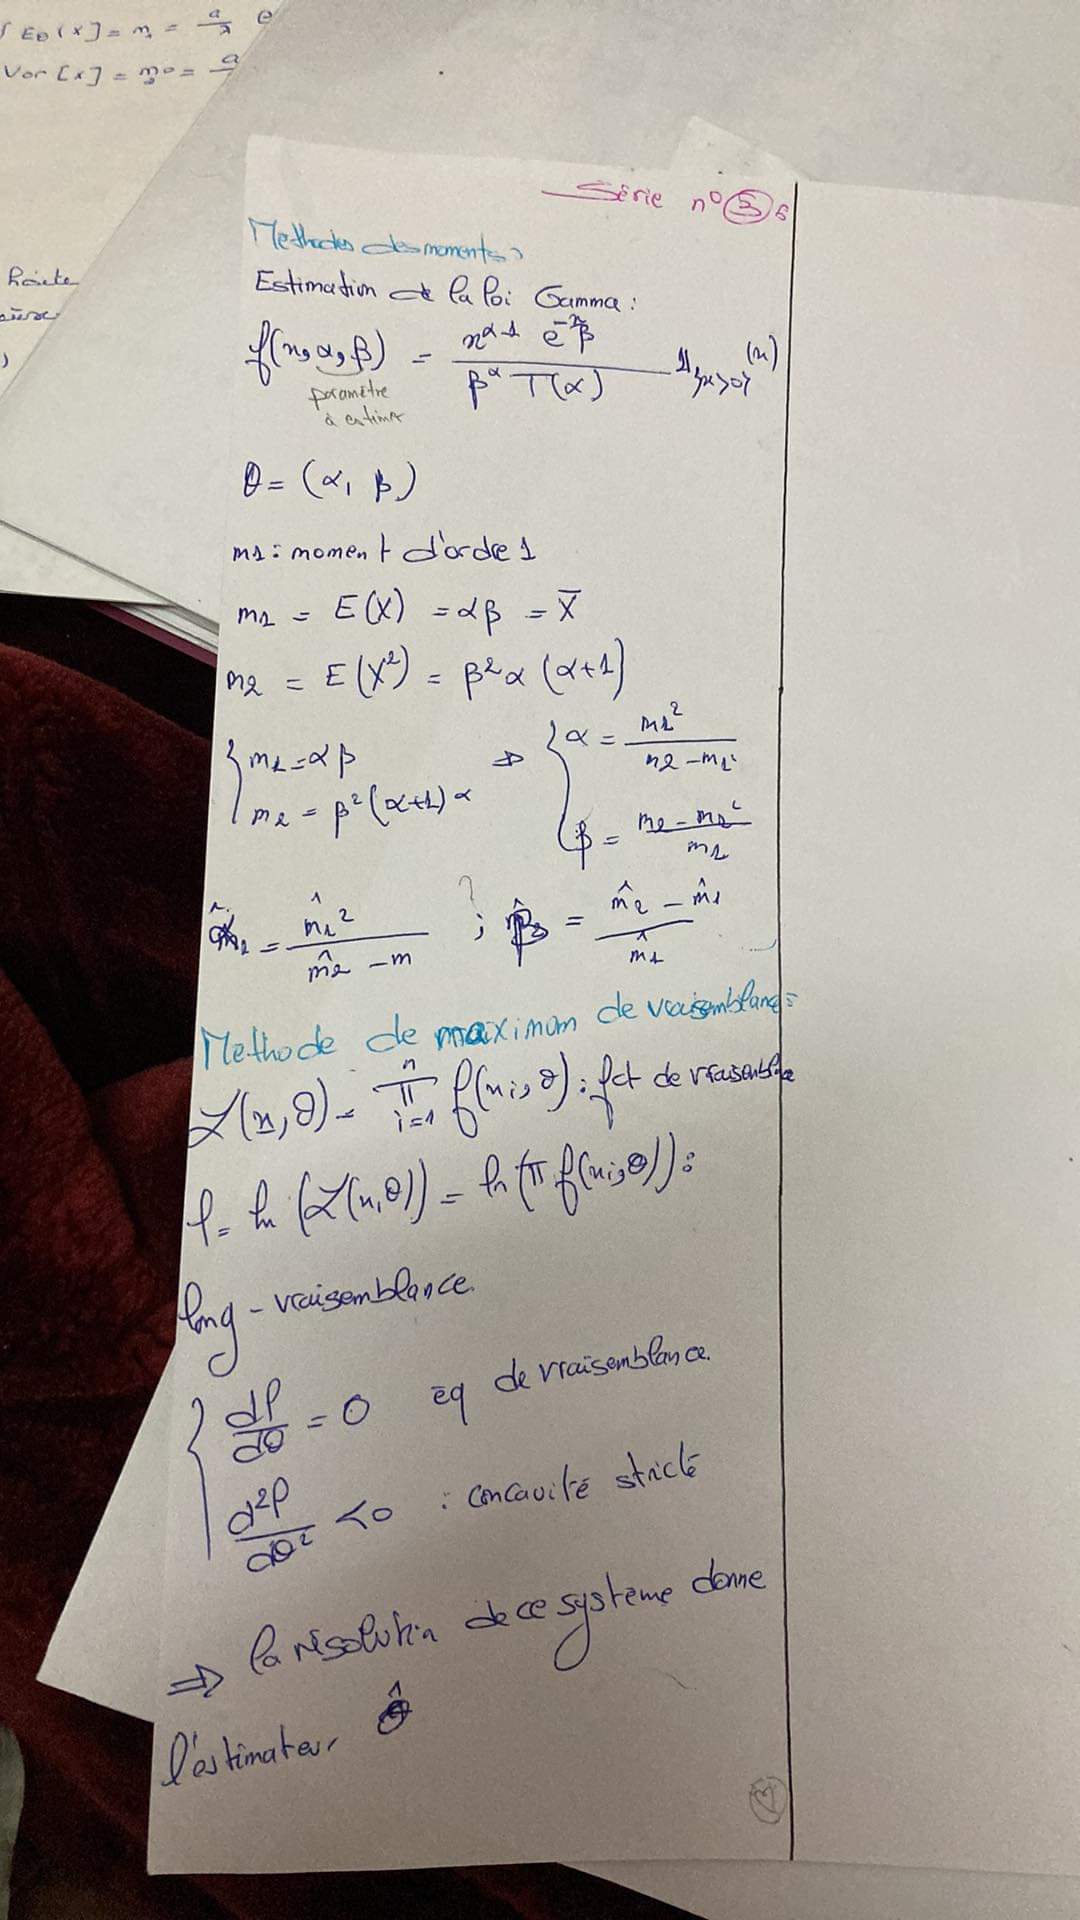 E_θ[X] = m₁ = a/λ
Var[X] = m₂⁰ = a
haite
Série n° 5 6
Methodes des moments :
Estimation de la loi Gamma :
f(x, α, β) = x^(α-1) e^(-x/β) / (β^α Γ(α)) 1_{x>0}(x)
paramètre
à estimer
θ = (α, β)
m1 : moment d'ordre 1
m1 = E(X) = αβ = X̄
m2 = E(X²) = β²α (α+1)
{ m1 = αβ ⇒ { α = m1² / (m2 - m1²)
m2 = β²(α+1)α β = (m2 - m1²) / m1
?
α̂₂ = m̂1² / (m̂2 - m ; β̂₂ = (m̂2 - m̂1) / m̂1
Methode de maximum de vraisemblance
L(x, θ) = π_{i=1}^{n} f(xi, θ) : fct de vraisemblance
l = ln (L(x, θ)) = ln (π f(xi, θ)) :
long - vraisemblance.
{ dl/dθ = 0 éq de vraisemblance.
d²l/dθ² < 0 : concavité stricte
⇒ la résolution de ce système donne
l'estimateur θ̂